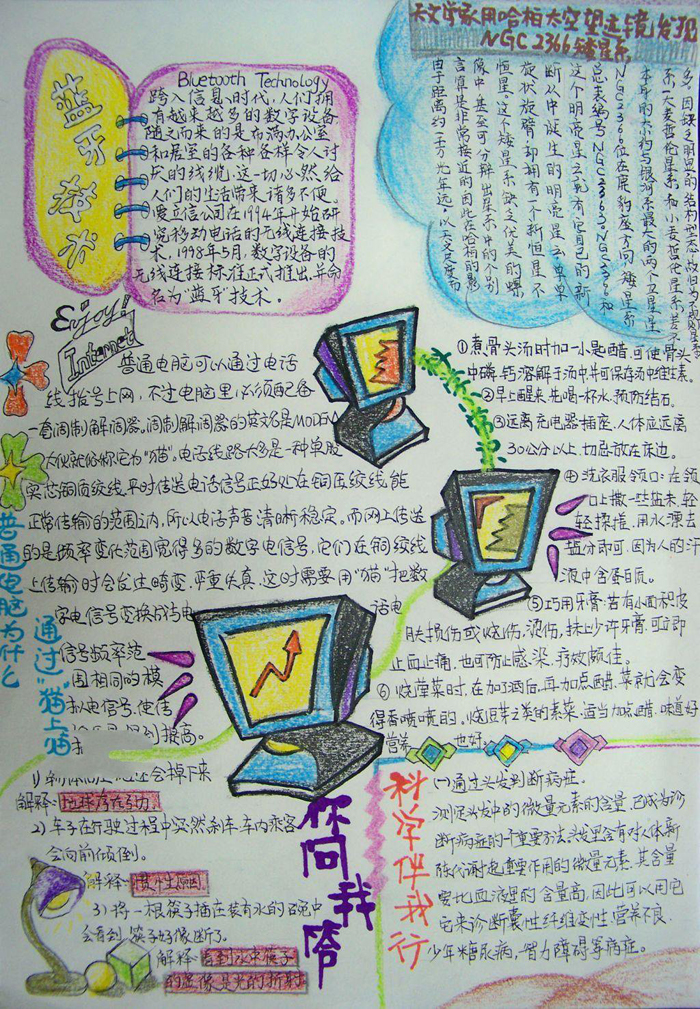 蓝牙技术
Bluetooth Technology
跨入信息时代，人们拥
有越来越多的数字设备
随之而来的是布满办公室
和居室的各种各样令人讨
厌的线缆，这一切必然给
人们的生活带来诸多不便。
爱立信公司在1994年开始研
究移动电话的无线连接技
术，1998年5月，数字设备的
无线连接标准正式推出，并命
名为“蓝牙”技术．
天文学家用哈柏太空望远镜发现
NGC2366矮星系
由于距离约一千万光年远，以天文尺度而
言算是非常接近的因此在哈柏的影
像中，甚至可分辨出星系中的个别
恒星．这个矮星系缺乏优美的螺
旋状旋臂，却拥有一个新恒星不
断从中诞生的明亮星云，
这个明亮星云，有它自己的新
总表编号NGC2363，NGC2363和
NGC2366位在鹿豹座方向，矮星系
本身的大小约与银河系最大的两个卫星星
系—大麦哲伦星系和小麦哲伦星系差不
Enjoy!
Internet
普通电脑可以通过电话
线拨号上网，不过电脑里必须配备
一套调制解调器。调制解调器的英文名是MODEM
大伙就俗称它为“猫”。电话线路大多是一种单股
实芯铜质绞线，平时传送电话信号正好处在铜压绞线能
正常传输的范围之内，所以电话声音清晰稳定。而网上传送
的是频率变化范围宽得多的数字电信号，它们在铜绞线
上传输时会发生畸变，严重失真，这时需要用“猫”把数
字电信号变换成与电话电
信号频率范
围相同的模
拟电信号，使传
提高。
普通电脑为什么
通过“猫”上猫
①煮骨头汤时加一小匙醋，可使骨头
中磷、钙溶解于汤中，并可保存汤中维生素．
②早上醒来，先喝一杯水，预防结石。
③远离充电器插座，人体应远离
30公分以上，切忌放在床边。
④洗衣服领口：在领
口上撒一些盐末，轻
轻揉搓，用水漂去
盐分即可，因为人的汗
液中含蛋白质。
⑤巧用牙膏：若有小面积皮
肤损伤或烧伤、烫伤，抹上少许牙膏，可立即
止血止痛，也可防止感染，疗效颇佳。
⑥烧荤菜时，在加了酒后，再加点醋，菜就会变
得香喷喷的．烧豆芽之类的素菜，适当加点醋，味道好
营养也好．
还会掉下来
解释：地球存在引力
2）车子在行驶过程中突然刹车，车内乘客
会向前倾倒。
解释：惯性原因
3）将一根筷子插在装有水的碗中
会看到筷子好像断了。
解释：看到水中筷子
的虚像是光的折射
你问我答
科学伴我行
（一）通过头发判断病症。
测定头发中的微量元素的含量，已成为诊
断病症的一个重要方法。头发里含有对人体新
陈代谢起重要作用的微量元素，其含量
要比血液里的含量高，因此可以用它
它来诊断囊性纤维变性、营养不良、
少年糖尿病，智力障碍等病症。